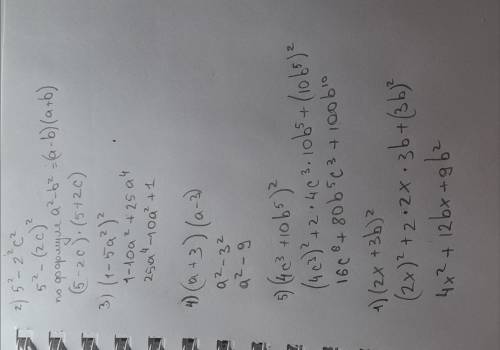 2) 5² - 2²c²
5² - (2c)²
по формуле a² - b² = (a - b)(a + b)
(5 - 2c) · (5 + 2c)
3) (1 - 5a²)²
1 - 10a² + 25a⁴
25a⁴ - 10a² + 1
4) (a + 3) (a - 2)
a² - 3²
a² - 9
5) (4c³ + 10b⁵)²
(4c³)² + 2 · 4c³ · 10b⁵ + (10b⁵)²
16c⁸ + 80b⁵c³ + 100b¹⁰
1) (2x + 3b)²
(2x)² + 2 · 2x · 3b + (3b)²
4x² + 12bx + 9b²